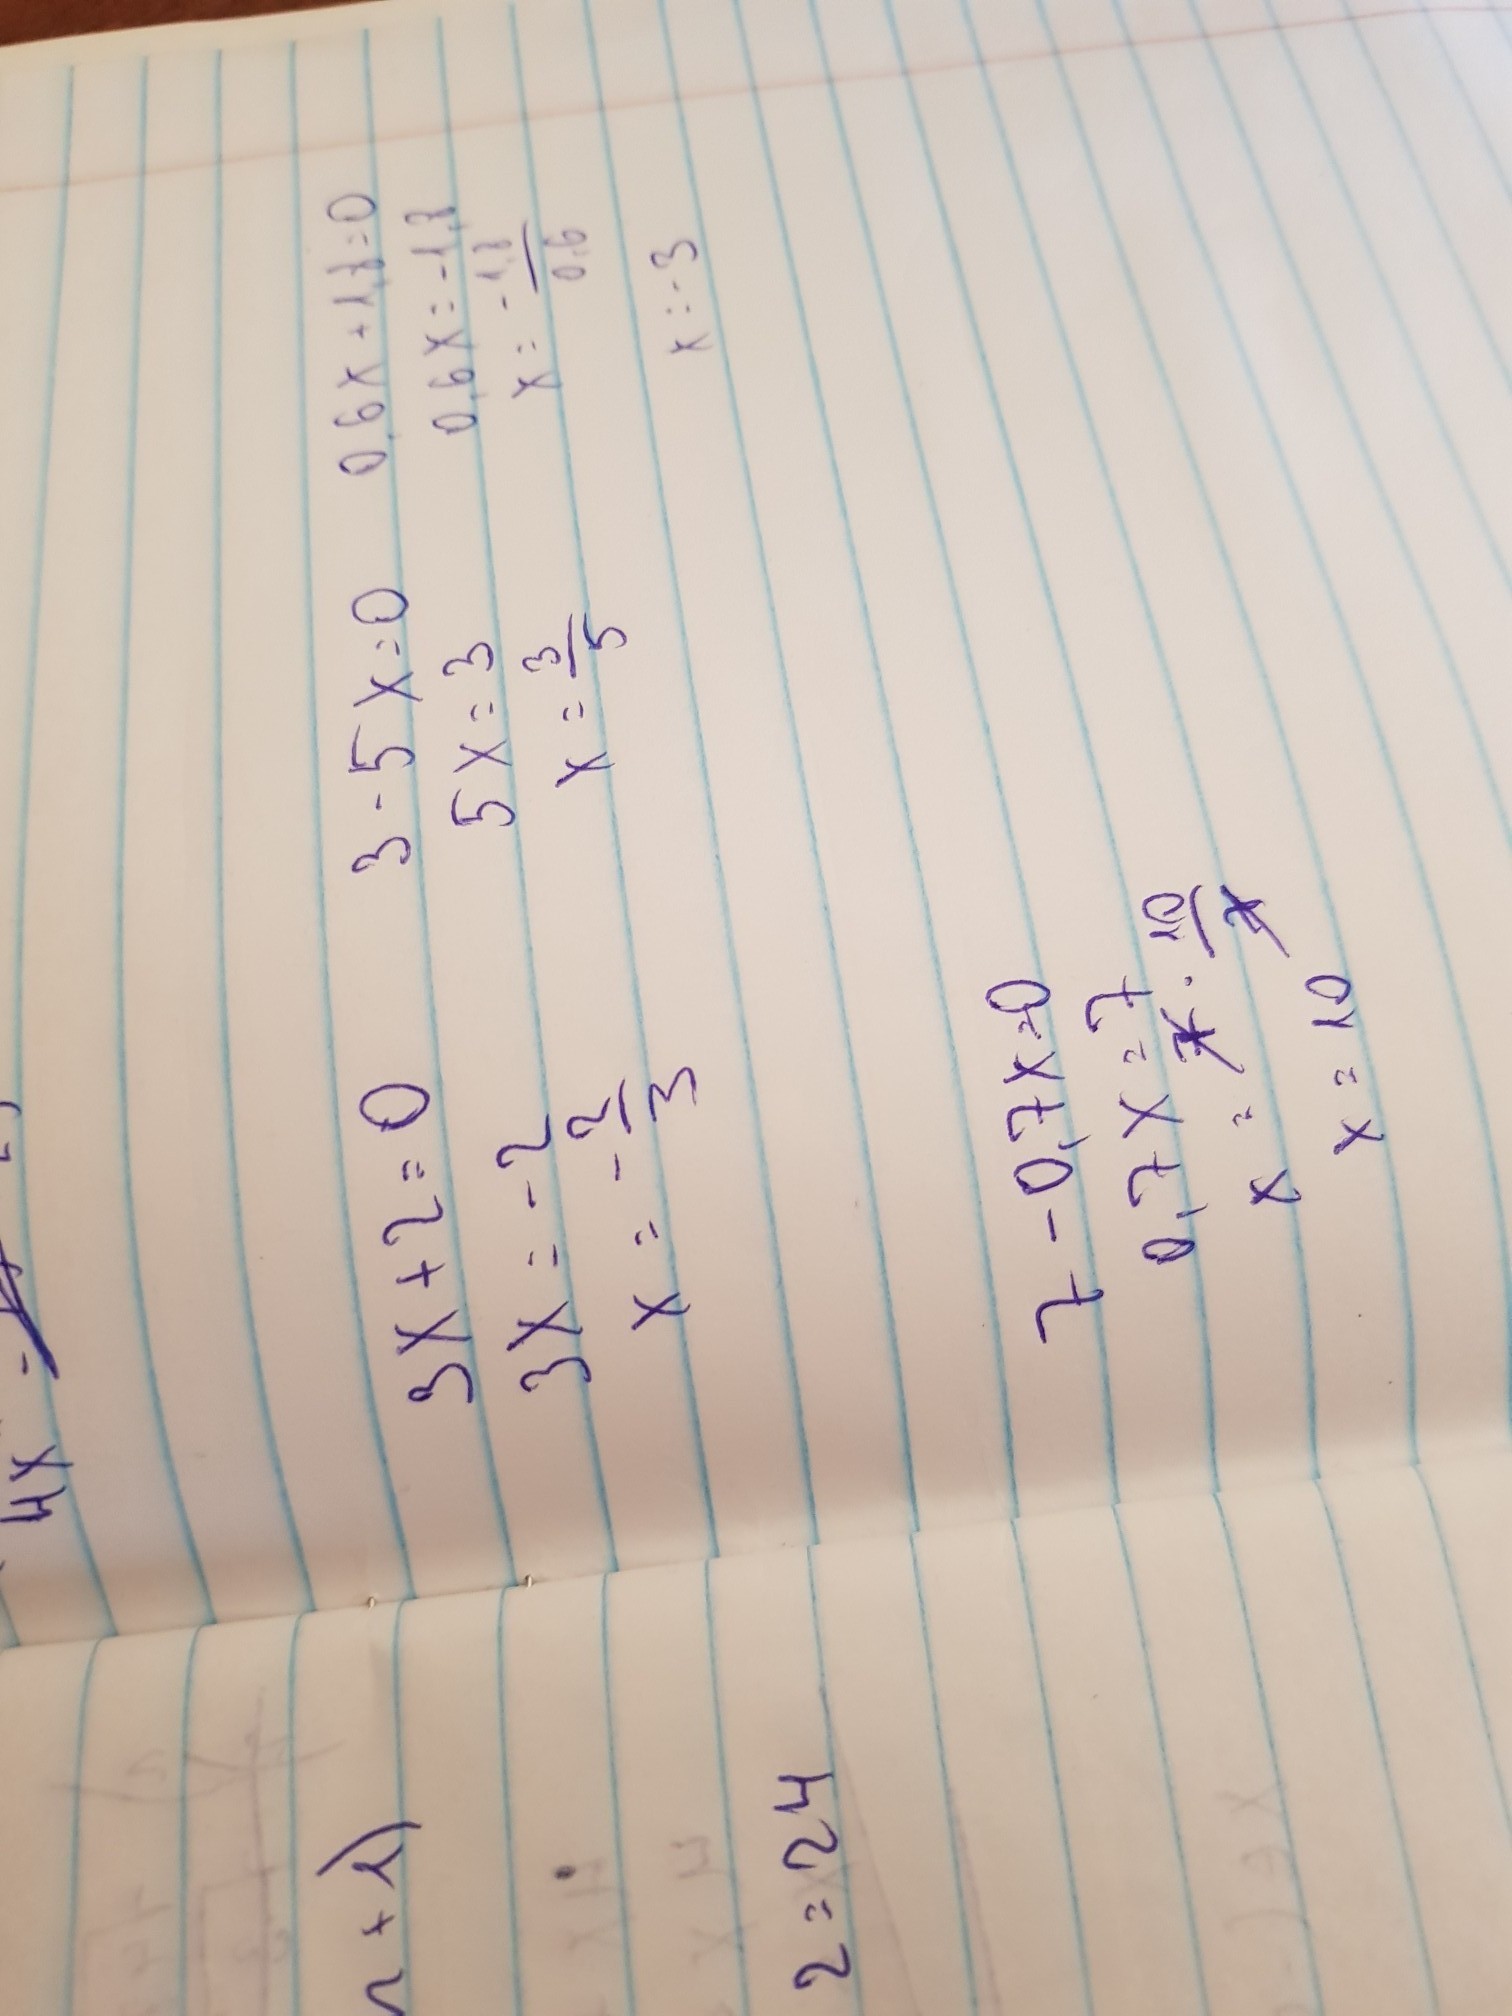 4x =
3x+2=0
3x = -2
x = - 2/3
3-5x=0
5x=3
x = 3/5
0,6x+1,8=0
0,6x=-1,8
x = - 1,8/0,6
x = -3
7-0,7x=0
0,7x=7
x = 7 · 10/7
x = 10
n+1)
2=24